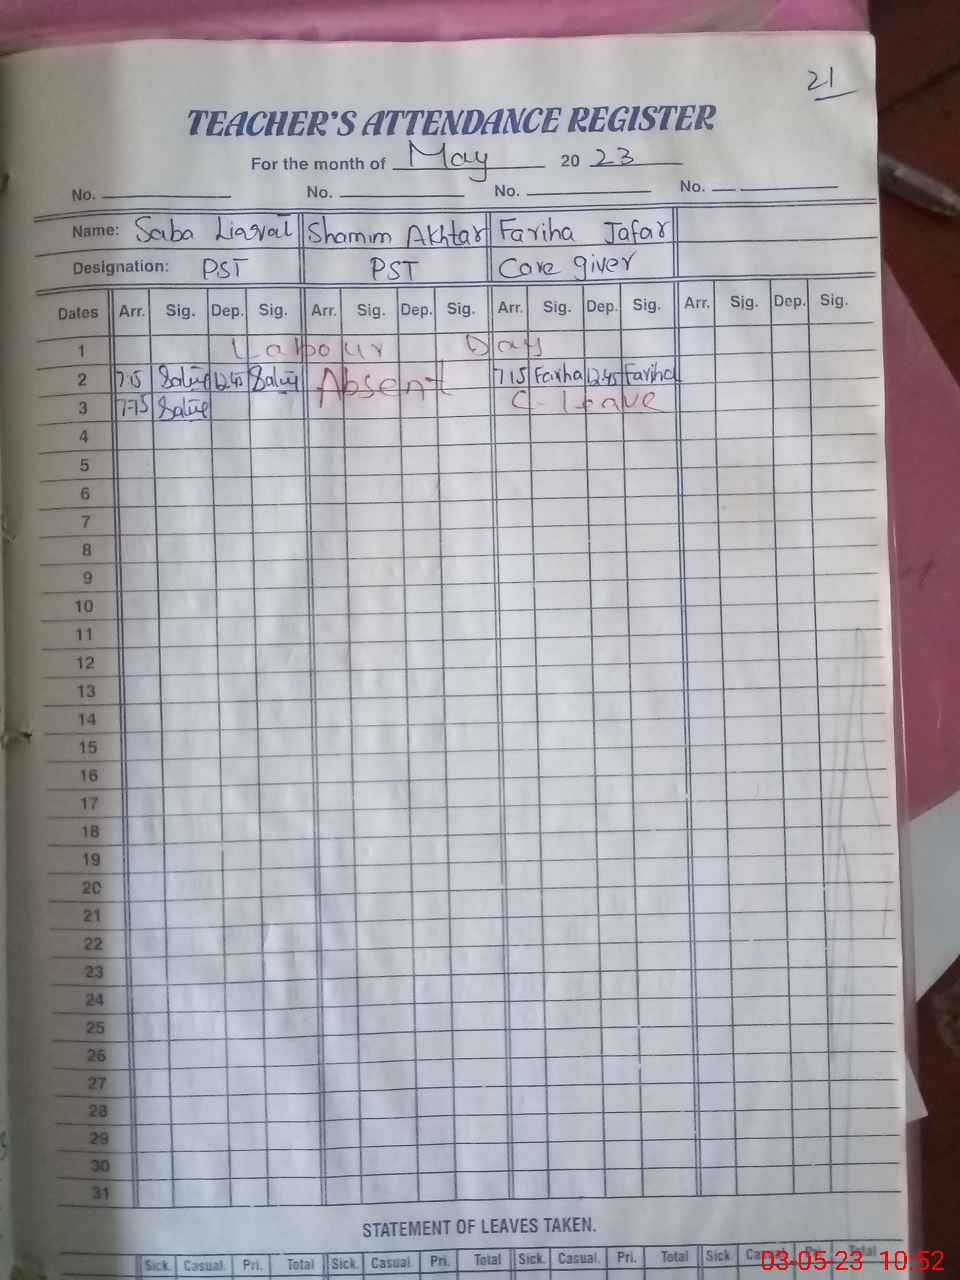 21
TEACHER'S ATTENDANCE REGISTER
For the month of May 20 23
No. No. No. No.
Name: Saba Liaqat Shamim Akhtar Fariha Jafar
Designation: PST PST Care giver
Dates Arr. Sig. Dep. Sig. Arr. Sig. Dep. Sig. Arr. Sig. Dep. Sig. Arr. Sig. Dep. Sig.
1 Labour Day
2 7.15 12.45 Absent 7.15 Fariha 12.45 Fariha
3 7.15 C-leave
4
5
6
7
8
9
10
11
12
13
14
15
16
17
18
19
20
21
22
23
24
25
26
27
28
29
30
31
STATEMENT OF LEAVES TAKEN.
Sick. Casual. Pri. Total Sick. Casual. Pri. Total Sick. Casual. Pri. Total Sick. Total
03-05-23 10:52